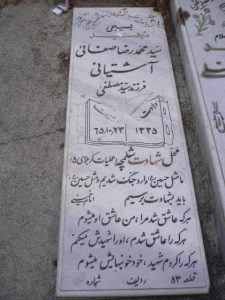 بسیجی
شهید
سید محمدرضا صفائی
آشتیانی
فرزند سید مصطفی
ولادت
شهادت
۱۳۳۵
۶۵/۱۰/۲۳
محل شهادت شلمچه (عملیات کربلای ۵)
ما مثل حسین (ع) وارد جنگ شدیم و مثل حسین (ع)
باید بشهادت برسیم
هر که عاشق شد مرا، من عاشق او میشوم
هر که را عاشق شدم، او را شهیدش میکنم
هر که را کردم شهید، خود خونبهایش میشوم
قطعه ۵۳ ردیف شماره